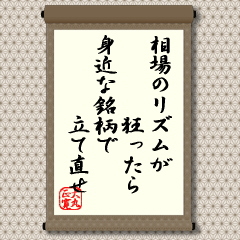 相場のリズムが
狂ったら
身近な銘柄で
立て直せ